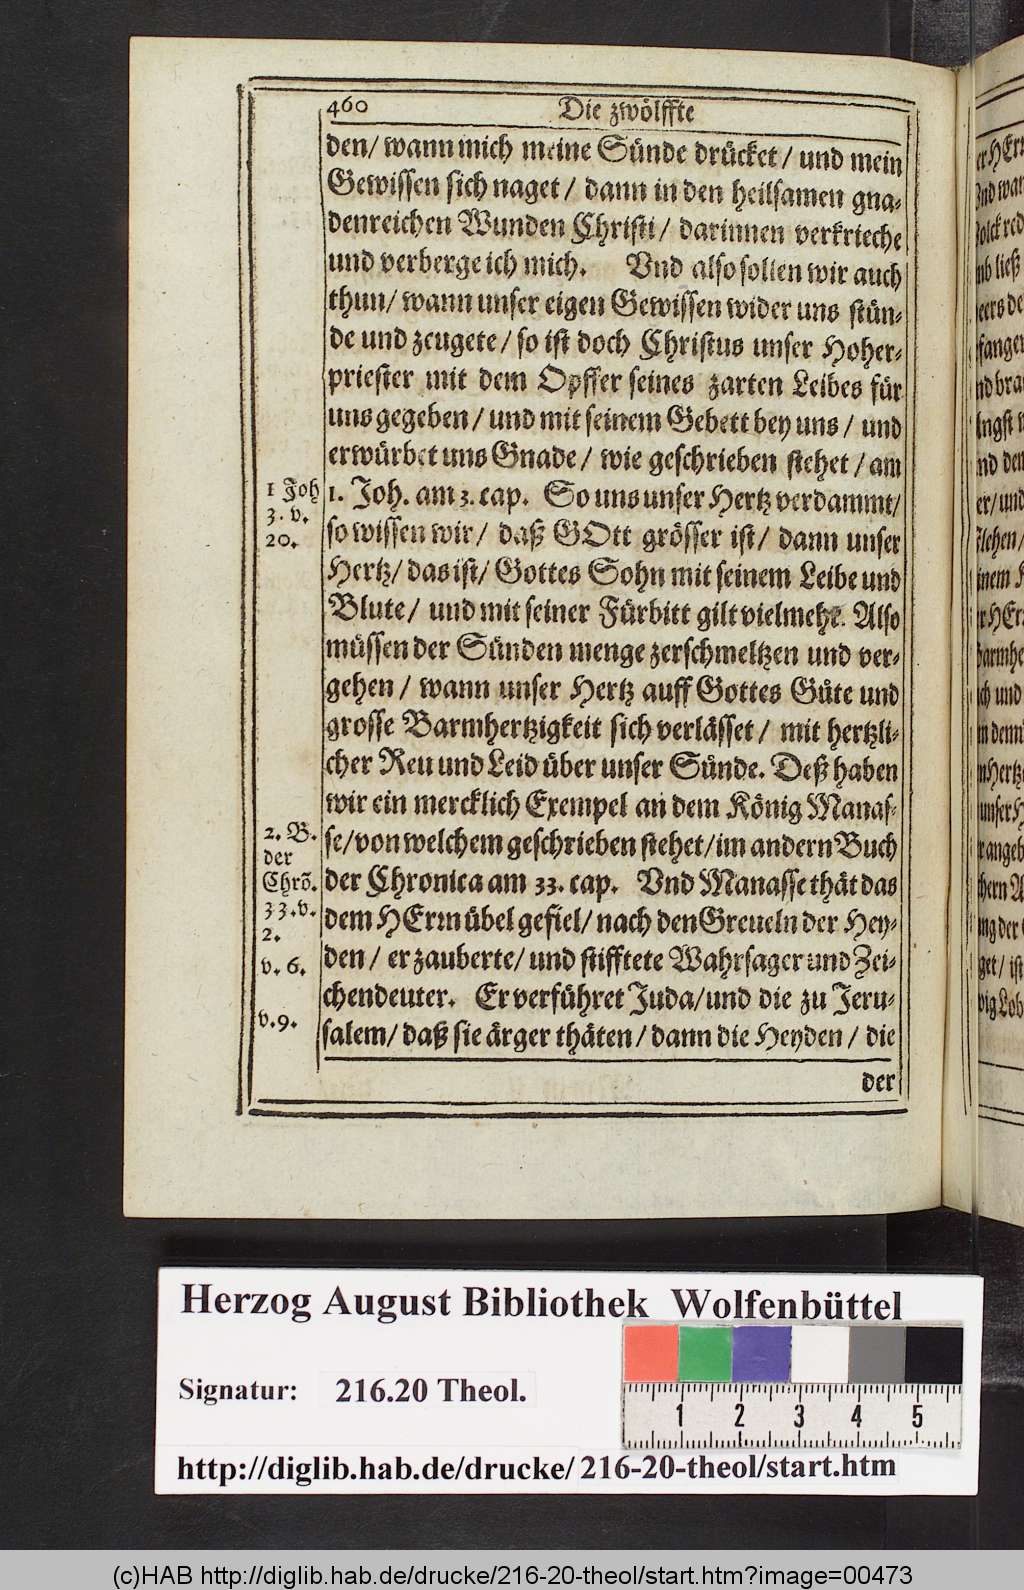 460 Die zwölffte
den/ wann mich meine Sünde drücket/ und mein
Gewissen sich naget/ dann in den heilsamen gna-
denreichen Wunden Christi/ darinnen verkrieche
und verberge ich mich. Vnd also sollen wir auch
thun/ wann unser eigen Gewissen wider uns stün-
de und zeugete/ so ist doch Christus unser Hoher-
priester mit dem Opffer seines zarten Leibes für
uns gegeben/ und mit seinem Gebett bey uns/ und
erwürbet uns Gnade/ wie geschrieben stehet/ am
1 Joh
3. v.
20.
1. Joh. am 3. cap. So uns unser Hertz verdammt/
so wissen wir/ daß GOtt grösser ist/ dann unser
Hertz/ das ist/ Gottes Sohn mit seinem Leibe und
Blute/ und mit seiner Fürbitt gilt vielmehr. Also
müssen der Sünden menge zerschmeltzen und ver-
gehen/ wann unser Hertz auff Gottes Güte und
grosse Barmhertzigkeit sich verlässet/ mit hertzli-
cher Reu und Leid über unser Sünde. Deß haben
wir ein mercklich Exempel an dem König Manas-
2. B.
der
Chrō.
33. v.
2.
v. 6.
v. 9.
se/ von welchem geschrieben stehet/ im andern Buch
der Chronica am 33. cap. Vnd Manasse thät das
dem HErrn übel gefiel/ nach den Greueln der Hey-
den/ er zauberte/ und stifftete Wahrsager und Zei-
chendeuter. Er verführet Juda/ und die zu Jeru-
salem/ daß sie ärger thäten/ dann die Heyden/ die
der
Herzog August Bibliothek Wolfenbüttel
Signatur: 216.20 Theol.
1 2 3 4 5
http://diglib.hab.de/drucke/ 216-20-theol/start.htm
(c)HAB http://diglib.hab.de/drucke/216-20-theol/start.htm?image=00473